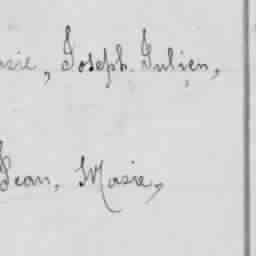 Joseph Julien,
Jean, Marie,